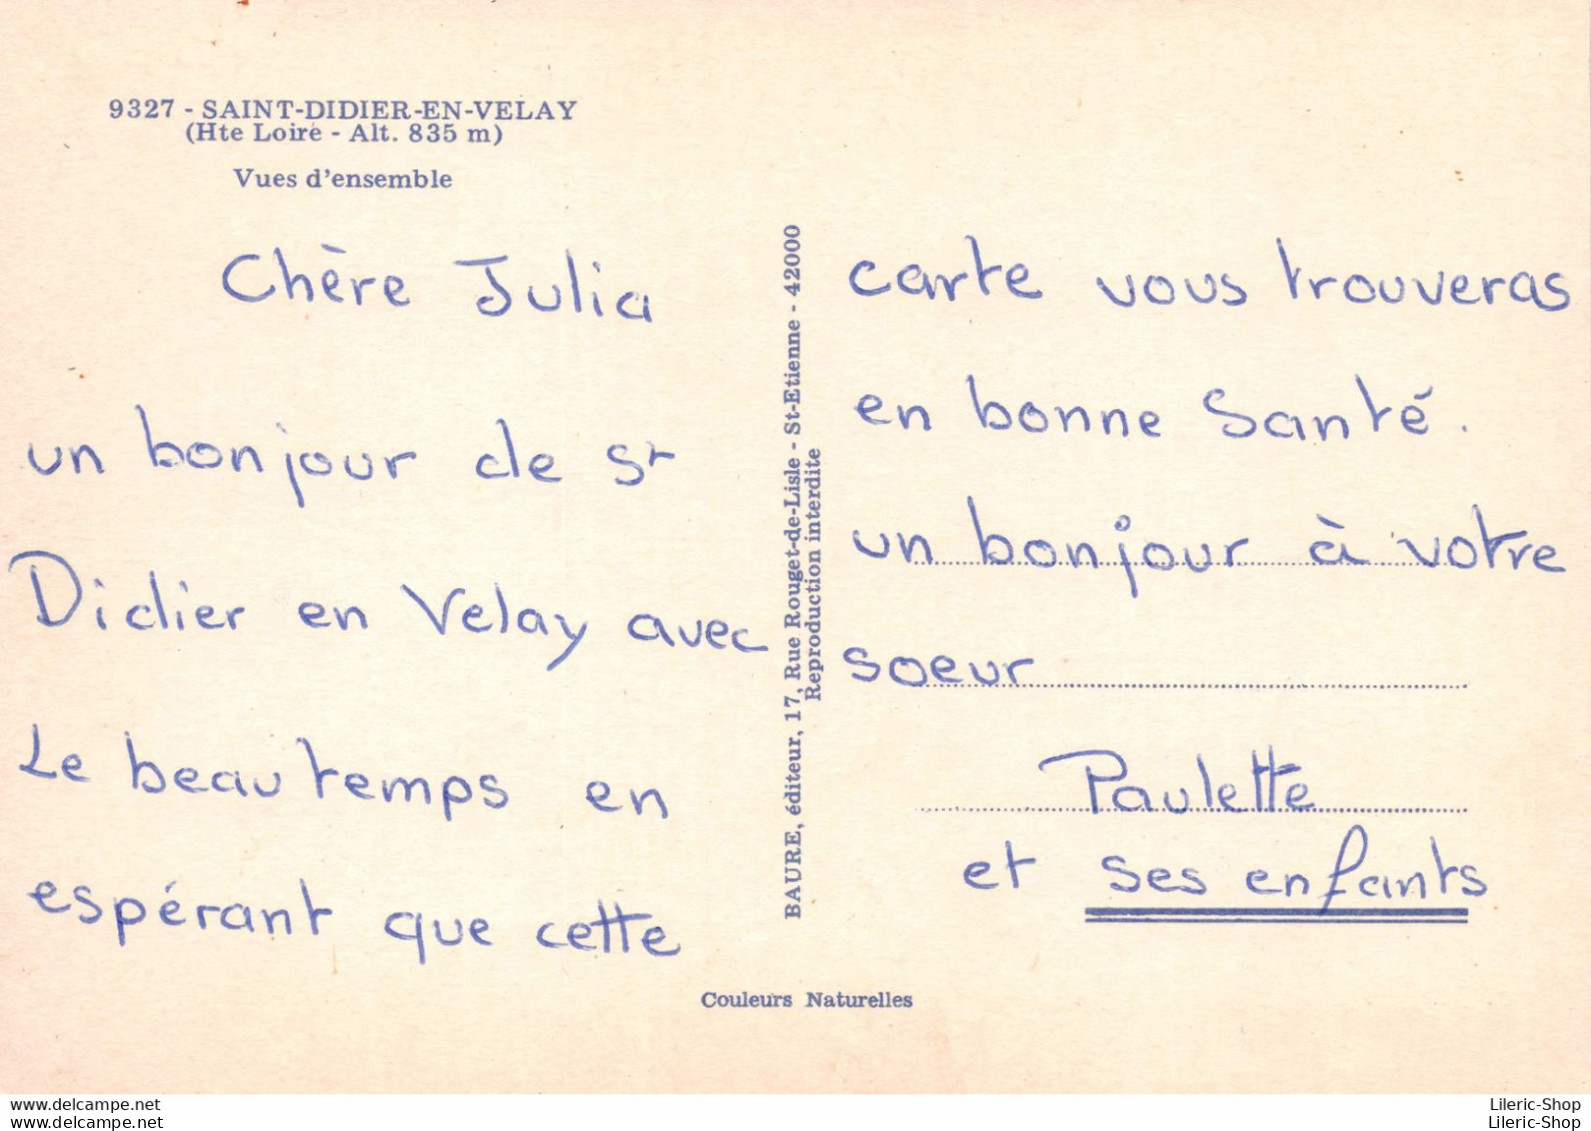 9327 - SAINT-DIDIER-EN-VELAY
(Hte Loire - Alt. 835 m)
Vues d'ensemble
Chère Julia
un bonjour de St
Didier en Velay avec
Le beau temps en
espérant que cette
BAURE, éditeur, 17, Rue Rouget-de-Lisle - St-Etienne - 42000
Reproduction interdite
carte vous trouveras
en bonne Santé.
un bonjour à votre
soeur
Paulette
et ses enfants
Couleurs Naturelles
www.delcampe.net
www.delcampe.net
Lileric-Shop
Lileric-Shop